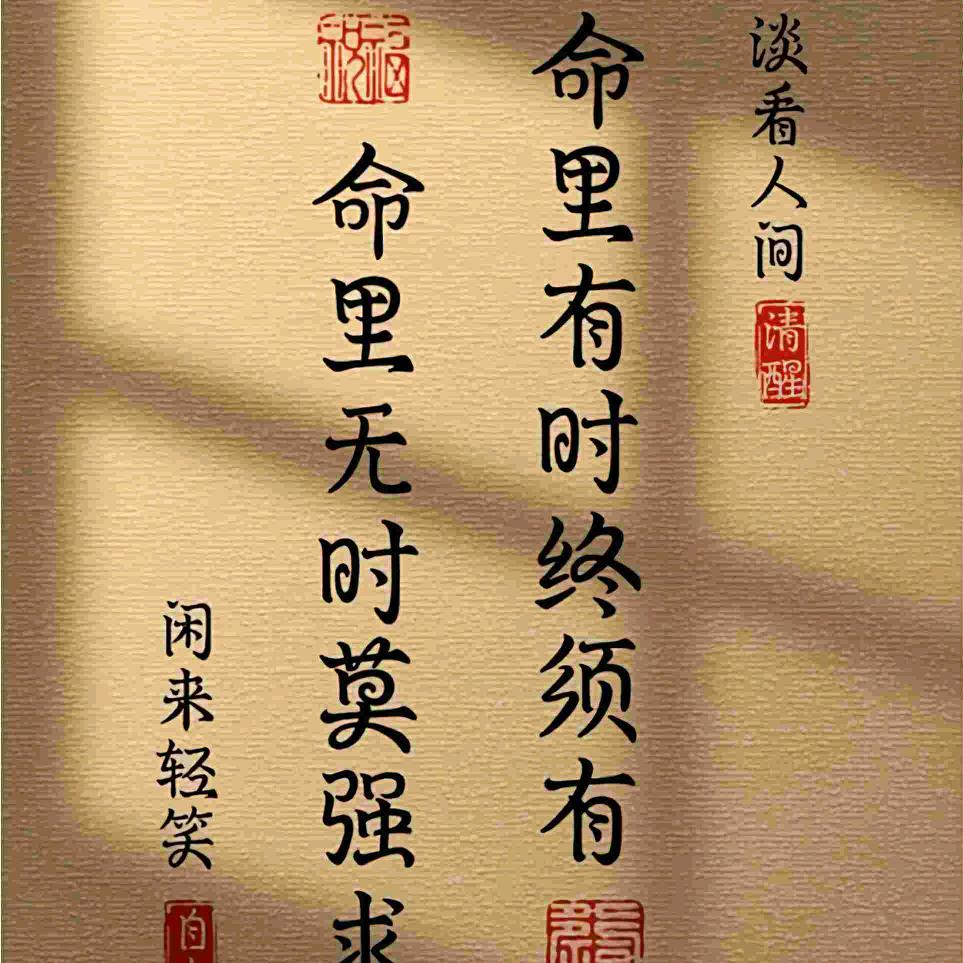 淡看人间
清醒
命里有时终须有
命里无时莫强求
闲来轻笑